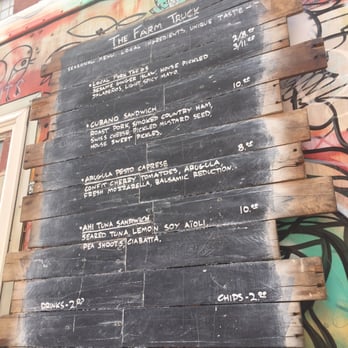 THE FARM TRUCK
SEASONAL MENU. LOCAL INGREDIENTS. UNIQUE TASTE
• LOCAL PORK TACOS 2/8.00
SESAME GINGER SLAW, HOUSE PICKLED 3/11.00
JALAPEÑOS, LIGHT SPICY MAYO.
• CUBANO SANDWICH 10.00
ROAST PORK, SMOKED COUNTRY HAM,
SWISS CHEESE, PICKLED MUSTARD SEED,
HOUSE SWEET PICKLES.
• ARUGULA PESTO CAPRESE 8.00
CONFIT CHERRY TOMATOES, ARUGULA,
FRESH MOZZARELLA, BALSAMIC REDUCTION.
• AHI TUNA SANDWICH 10.00
SEARED TUNA, LEMON SOY AÏOLI,
PEA SHOOTS, CIABATTA.
DRINKS - 2.00 CHIPS - 2.00